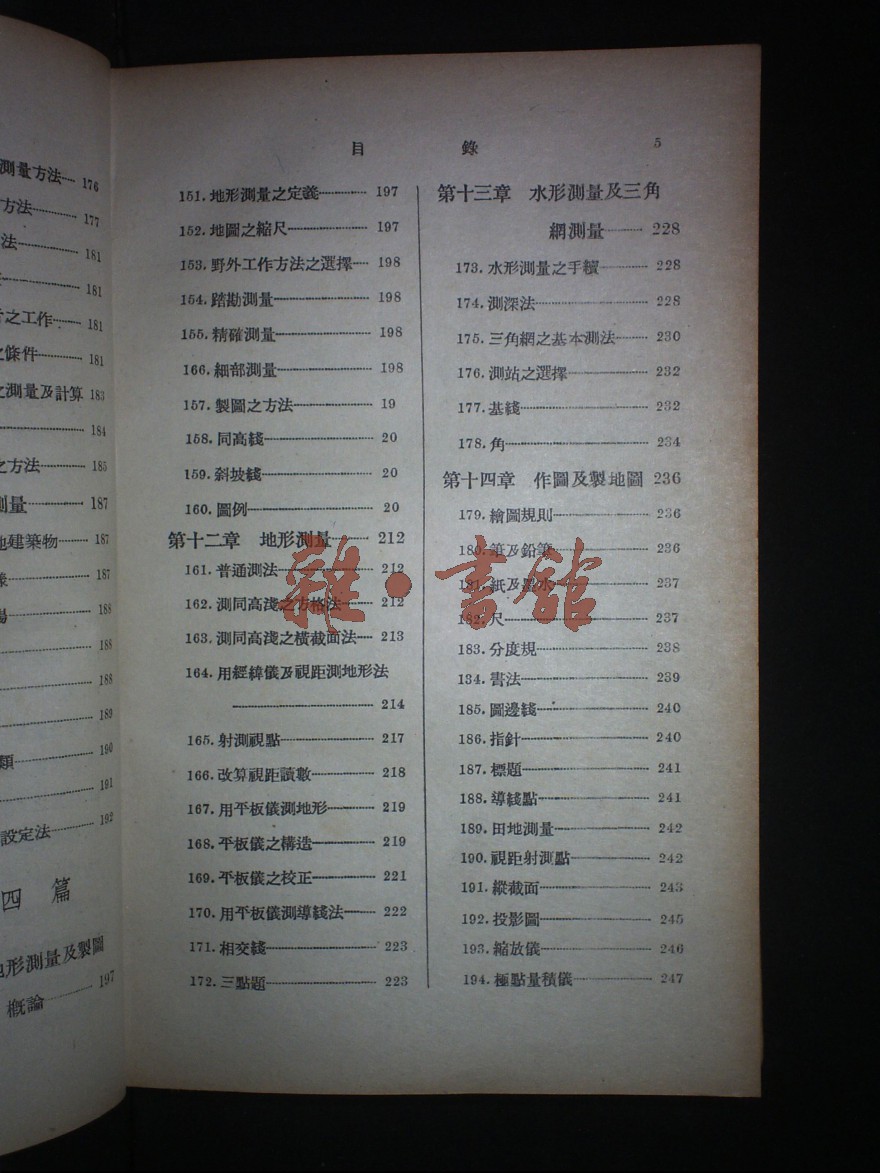 測量方法 176
方法 177
法 181
181
之工作 181
之條件 181
之測量及計算 183
184
之方法 185
測量 187
地建築物 187
187
188
188
188
189
類 190
191
設定法 192
四 篇
地形測量及製圖
概論 197
目 錄 5
151. 地形測量之定義 197
152. 地圖之縮尺 197
153. 野外工作方法之選擇 198
154. 踏勘測量 198
155. 精確測量 198
166. 細部測量 198
157. 製圖之方法 19
158. 同高綫 20
159. 斜坡綫 20
160. 圖例 20
第十二章 地形測量 212
161. 普通測法 212
162. 測同高淺之方格法 212
163. 測同高淺之橫截面法 213
164. 用經緯儀及視距測地形法
214
165. 射測視點 217
166. 改算視距讀數 218
167. 用平板儀測地形 219
168. 平板儀之構造 219
169. 平板儀之校正 221
170. 用平板儀測導綫法 222
171. 相交綫 223
172. 三點題 223
第十三章 水形測量及三角
網測量 228
173. 水形測量之手續 228
174. 測深法 228
175. 三角網之基本測法 230
176. 測站之選擇 232
177. 基綫 232
178. 角 234
第十四章 作圖及製地圖 236
179. 繪圖規則 236
180. 筆及鉛筆 236
181. 紙及墨水 237
182. 尺 237
183. 分度規 238
134. 書法 239
185. 圖邊綫 240
186. 指針 240
187. 標題 241
188. 導綫點 241
189. 田地測量 242
190. 視距射測點 242
191. 縱截面 243
192. 投影圖 245
193. 縮放儀 246
194. 極點量積儀 247
雜·書館